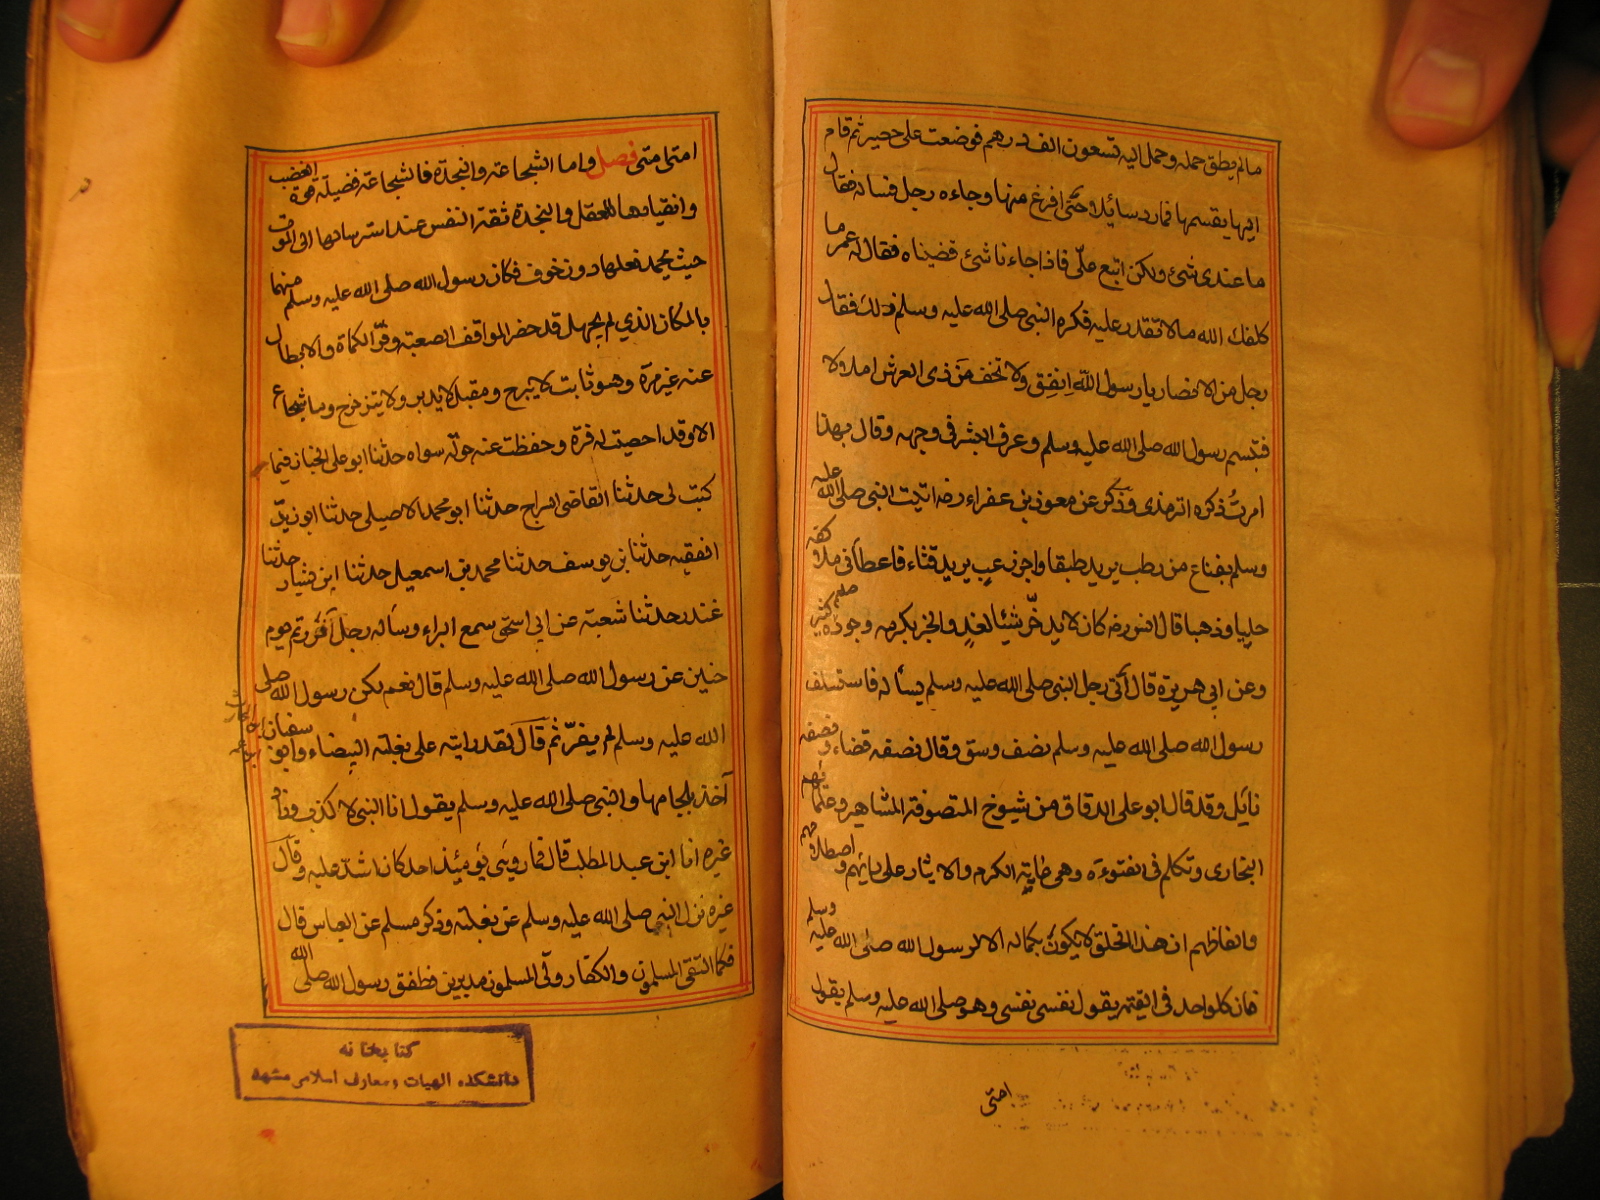 مالم يطق حمله وحمل اليه تسعون الف درهم فوضعت على حصير ثم قام
اليها يقسمها فمارد سائلا حتى افرغ منها وجاءه رجل فساله فقال
ما عندى شئ ولكن اتبع علىّ فاذا جاءنا شئ قضيناه فقال له عمر ما
كلفك الله مالا تقدر عليه فكره النبي صلى الله عليه وسلم ذلك فقال
رجل من الانصار يا رسول الله انفق ولا تخف من ذى العرش املالا
فتبسم رسول الله صلى الله عليه وسلم وعرف البشر فى وجهه وقال بهذا
امرت ذكره الترمذى وذكر عن معوذ بن عفراء رضه اتيت النبي صلى الله عليه
وسلم بقناع من رطب يريد طبقا واجر زغب يريد قثاء فاعطانى ملأ كفه
حليا وذهبا قال انس رضه كان صلعم لا يدخر شيئا لغد والخبر بكرمه وجوده كثير
وعن ابي هريرة قال أتى رجل النبي صلى الله عليه وسلم يسأله فاستسلف
رسول الله صلى الله عليه وسلم نصف وسق وقال نصفه قضاء ونصفه
نايل وقد قال ابو على الدقاق من شيوخ المتصوفة المشاهير وعلمائهم
البخارى وتكلم فى الفتوءة وهى غاية الكرم والايثار على رايهم واصطلاحهم
والفاظهم ان هذا الخلق لا يكون بكماله الا لرسول الله صلى الله عليه وسلم
فان كلواحد فى القيمة يقول نفسى نفسى وهو صلى الله عليه وسلم يقول
امتى
امتى امتى فصل واما الشجاعة والنجدة فالشجاعة فضيلة قوة الغضب
وانقيادها للعقل والنجدة ثقة النفس عند استرسالها الى الموت
حيث يحمد فعلها دون خوف فكان رسول الله صلى الله عليه وسلم منهما
بالمكان الذي لم يجهل قد حضر المواقف الصعبة وفرّ الكماة والابطال
عنه غير مرة وهو ثابت لا يبرح ومقبل لا يدبر ولا يتزحزح وما شجاع
الا وقد احصيت له فرة وحفظت عنه جولة سواه حدثنا ابو على الجيانى فيما
كتب لى حدثنا القاضى سراج حدثنا ابو محمد الاصيلى حدثنا ابو زيد
الفقيه حدثنا بن يوسف حدثنا محمد بن اسمعيل حدثنا ابن بشار حدثنا
غندر حدثنا شعبة عن ابي اسحق سمع البراء وساله رجل أفررتم يوم
حنين عن رسول الله صلى الله عليه وسلم قال نعم لكن رسول الله صلى
الله عليه وسلم لم يفرّ ثم قال لقد رايته على بغلته البيضاء وابو سفيان
آخذ بلجامها والنبي صلى الله عليه وسلم يقول انا النبي لا كذب وزاد
غيره انا ابن عبد المطلب قال فما رؤيى يومئذ احد كان اشد عليه وقال
غيره نزل النبي صلى الله عليه وسلم عن بغلته وذكر مسلم عن العباس قال
فلما التقى المسلمون والكفار ولّى المسلمون مدبرين فطفق رسول الله صلى الله
كتابخانه
دانشكده الهيات ومعارف اسلامى مشهد